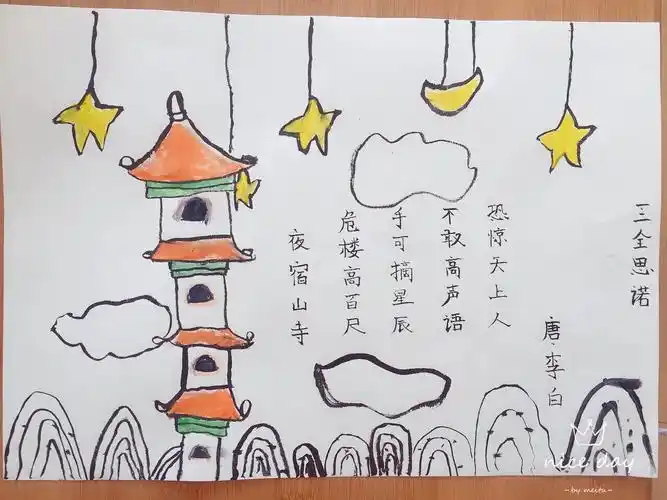 夜宿山寺
危楼高百尺
手可摘星辰
不敢高声语
恐惊天上人
唐·李白
三全思诺
nice day
-by meitu-